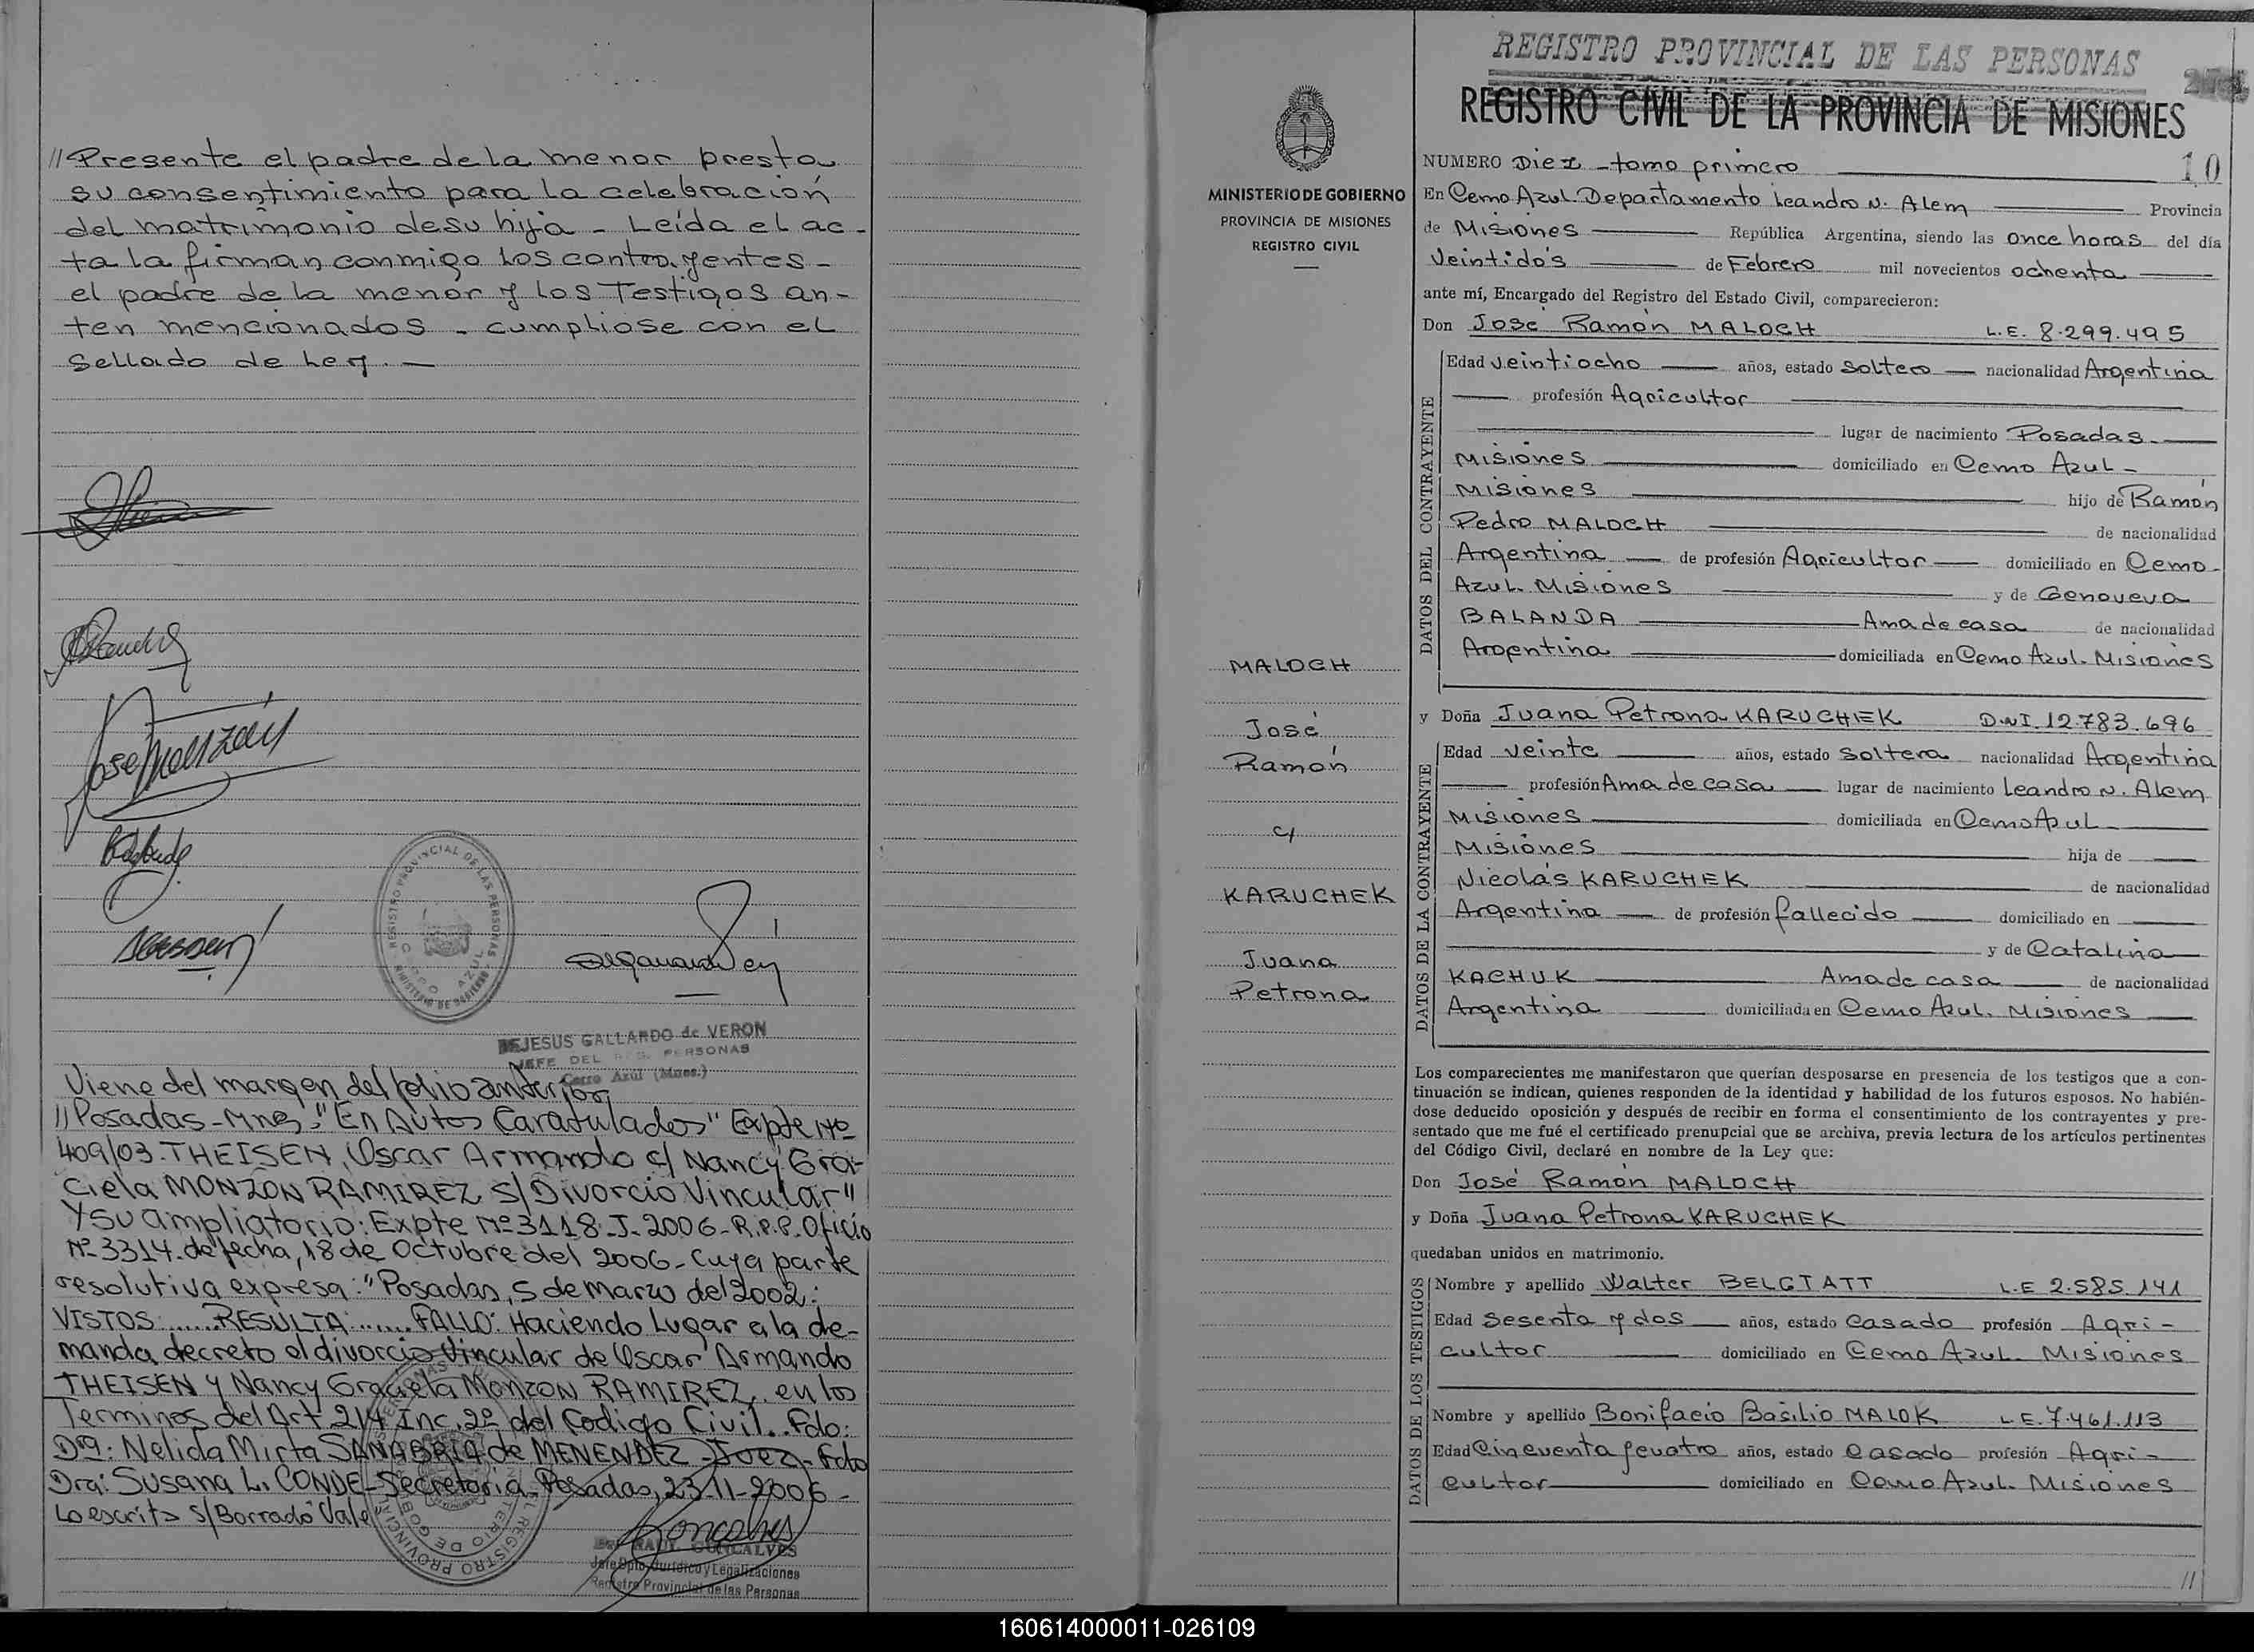 //Presente el padre de la menor presta
su consentimiento para la celebración
del matrimonio de su hija - Leída el ac-
ta la firman conmigo los contrayentes -
el padre de la menor y los Testigos an-
ten mencionados - cumpliose con el
Sellado de Ley. —
José Monzón
REGISTRO PROVINCIAL DE LAS PERSONAS
DEJESUS GALLARDO de VERON
JEFE DEL REG. PERSONAS
Cerro Azul (Mnes.)
Viene del margen del folio anterior
//Posadas-Mnes: "En Autos Caratulados" Expte Nº
409/03. THEISEN, Oscar Armando c/ Nancy Gra-
ciela MONZON RAMIREZ S/Divorcio Vincular"
Y su ampliatorio: Expte Nº 3118-J-2006-R.P.P. Oficio
Nº 3314. de fecha, 18 de Octubre del 2006- Cuya parte
resolutiva expresa: "Posadas, 5 de Marzo del 2002:
VISTOS:......RESULTA:......FALLO: Haciendo Lugar a la de-
manda decreto el divorcio Vincular de Oscar Armando
THEISEN Y Nancy Graciela Monzon RAMIREZ, en los
Terminos del Art 214 Inc. 2º del Codigo Civil.. Fdo:
Dra: Nelida Mirta SANABRIA de MENENDEZ - Juez - Fdo
Dra: Susana L. CONDE - Secretaria - Posadas, 23-11-2006-
Lo escrito s/Borrado Vale
RAUL GONCALVES
Jefe Dpto. Jurídico y Legalizaciones
Registro Provincial de las Personas
MINISTERIO DE GOBIERNO
PROVINCIA DE MISIONES
REGISTRO CIVIL
MALOCH
José
Ramón
c/
KARUCHEK
Juana
Petrona
REGISTRO PROVINCIAL DE LAS PERSONAS
REGISTRO CIVIL DE LA PROVINCIA DE MISIONES
NUMERO Diez - tomo primero 10
En Cerro Azul. Departamento Leandro N. Alem Provincia
de Misiones República Argentina, siendo las once horas del día
Veintidós de Febrero mil novecientos ochenta
ante mí, Encargado del Registro del Estado Civil, comparecieron:
Don José Ramón MALOCH L.E. 8.299.495
DATOS DEL CONTRAYENTE
Edad veintiocho años, estado Soltero nacionalidad Argentina
profesión Agricultor
lugar de nacimiento Posadas
Misiones domiciliado en Cerro Azul -
Misiones hijo de Ramón
Pedro MALOCH de nacionalidad
Argentina de profesión Agricultor domiciliado en Cerro
Azul. Misiones y de Genoveva
BALANDA Ama de casa de nacionalidad
Argentina domiciliada en Cerro Azul. Misiones
y Doña Juana Petrona KARUCHEK D.N.I. 12.783.696
DATOS DE LA CONTRAYENTE
Edad veinte años, estado Soltera nacionalidad Argentina
profesión Ama de casa lugar de nacimiento Leandro N. Alem
Misiones domiciliada en Cerro Azul
Misiones hija de
Nicolás KARUCHEK de nacionalidad
Argentina de profesión fallecido domiciliado en
y de Catalina
KACHUK Ama de casa de nacionalidad
Argentina domiciliada en Cerro Azul. Misiones
Los comparecientes me manifestaron que querían desposarse en presencia de los testigos que a con-
tinuación se indican, quienes responden de la identidad y habilidad de los futuros esposos. No habién-
dose deducido oposición y después de recibir en forma el consentimiento de los contrayentes y pre-
sentado que me fué el certificado prenupcial que se archiva, previa lectura de los artículos pertinentes
del Código Civil, declaré en nombre de la Ley que:
Don José Ramón MALOCH
y Doña Juana Petrona KARUCHEK
quedaban unidos en matrimonio.
DATOS DE LOS TESTIGOS
Nombre y apellido Walter BELGTATT L.E 2.585.141
Edad Sesenta y dos años, estado Casado profesión Agri-
cultor domiciliado en Cerro Azul. Misiones
Nombre y apellido Bonifacio Basilio MALOK L.E. 7.461.113
Edad Cincuenta y cuatro años, estado Casado profesión Agri-
cultor domiciliado en Cerro Azul. Misiones
//
160614000011-026109